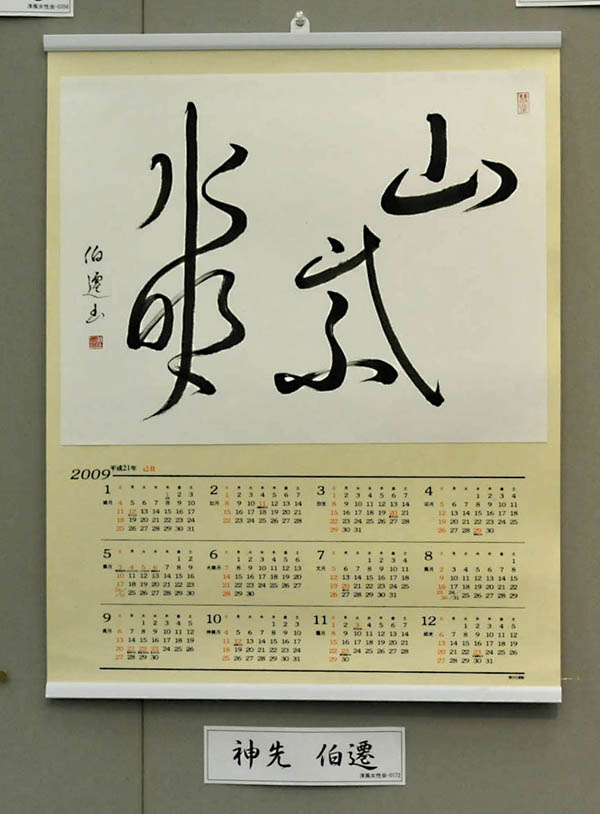 山紫水明
伯遷書
2009 平成21年 己丑
1 睦月
1 2 3
4 5 6 7 8 9 10
11 12 13 14 15 16 17
18 19 20 21 22 23 24
25 26 27 28 29 30 31
2 如月
1 2 3 4 5 6 7
8 9 10 11 12 13 14
15 16 17 18 19 20 21
22 23 24 25 26 27 28
3 弥生
1 2 3 4 5 6 7
8 9 10 11 12 13 14
15 16 17 18 19 20 21
22 23 24 25 26 27 28
29 30 31
4 卯月
1 2 3 4
5 6 7 8 9 10 11
12 13 14 15 16 17 18
19 20 21 22 23 24 25
26 27 28 29 30
5 皐月
1 2
3 4 5 6 7 8 9
10 11 12 13 14 15 16
17 18 19 20 21 22 23
24/31 25 26 27 28 29 30
6 水無月
1 2 3 4 5 6
7 8 9 10 11 12 13
14 15 16 17 18 19 20
21 22 23 24 25 26 27
28 29 30
7 文月
1 2 3 4
5 6 7 8 9 10 11
12 13 14 15 16 17 18
19 20 21 22 23 24 25
26 27 28 29 30 31
8 葉月
1
2 3 4 5 6 7 8
9 10 11 12 13 14 15
16 17 18 19 20 21 22
23/30 24/31 25 26 27 28 29
9 長月
1 2 3 4 5
6 7 8 9 10 11 12
13 14 15 16 17 18 19
20 21 22 23 24 25 26
27 28 29 30
10 神無月
1 2 3
4 5 6 7 8 9 10
11 12 13 14 15 16 17
18 19 20 21 22 23 24
25 26 27 28 29 30 31
11 霜月
1 2 3 4 5 6 7
8 9 10 11 12 13 14
15 16 17 18 19 20 21
22 23 24 25 26 27 28
29 30
12 師走
1 2 3 4 5
6 7 8 9 10 11 12
13 14 15 16 17 18 19
20 21 22 23 24 25 26
27 28 29 30 31
神先 伯遷
洋風女性会-0172